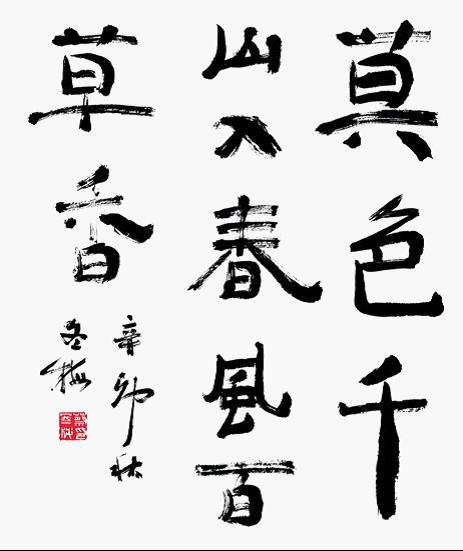 莫色千
山入春風百
草香
辛卯秋
冬梅